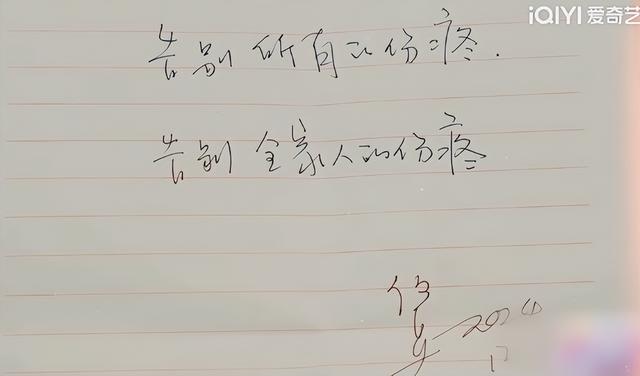 iQIYI 爱奇艺
告别 所有的伤疼.
告别 全家人的伤疼